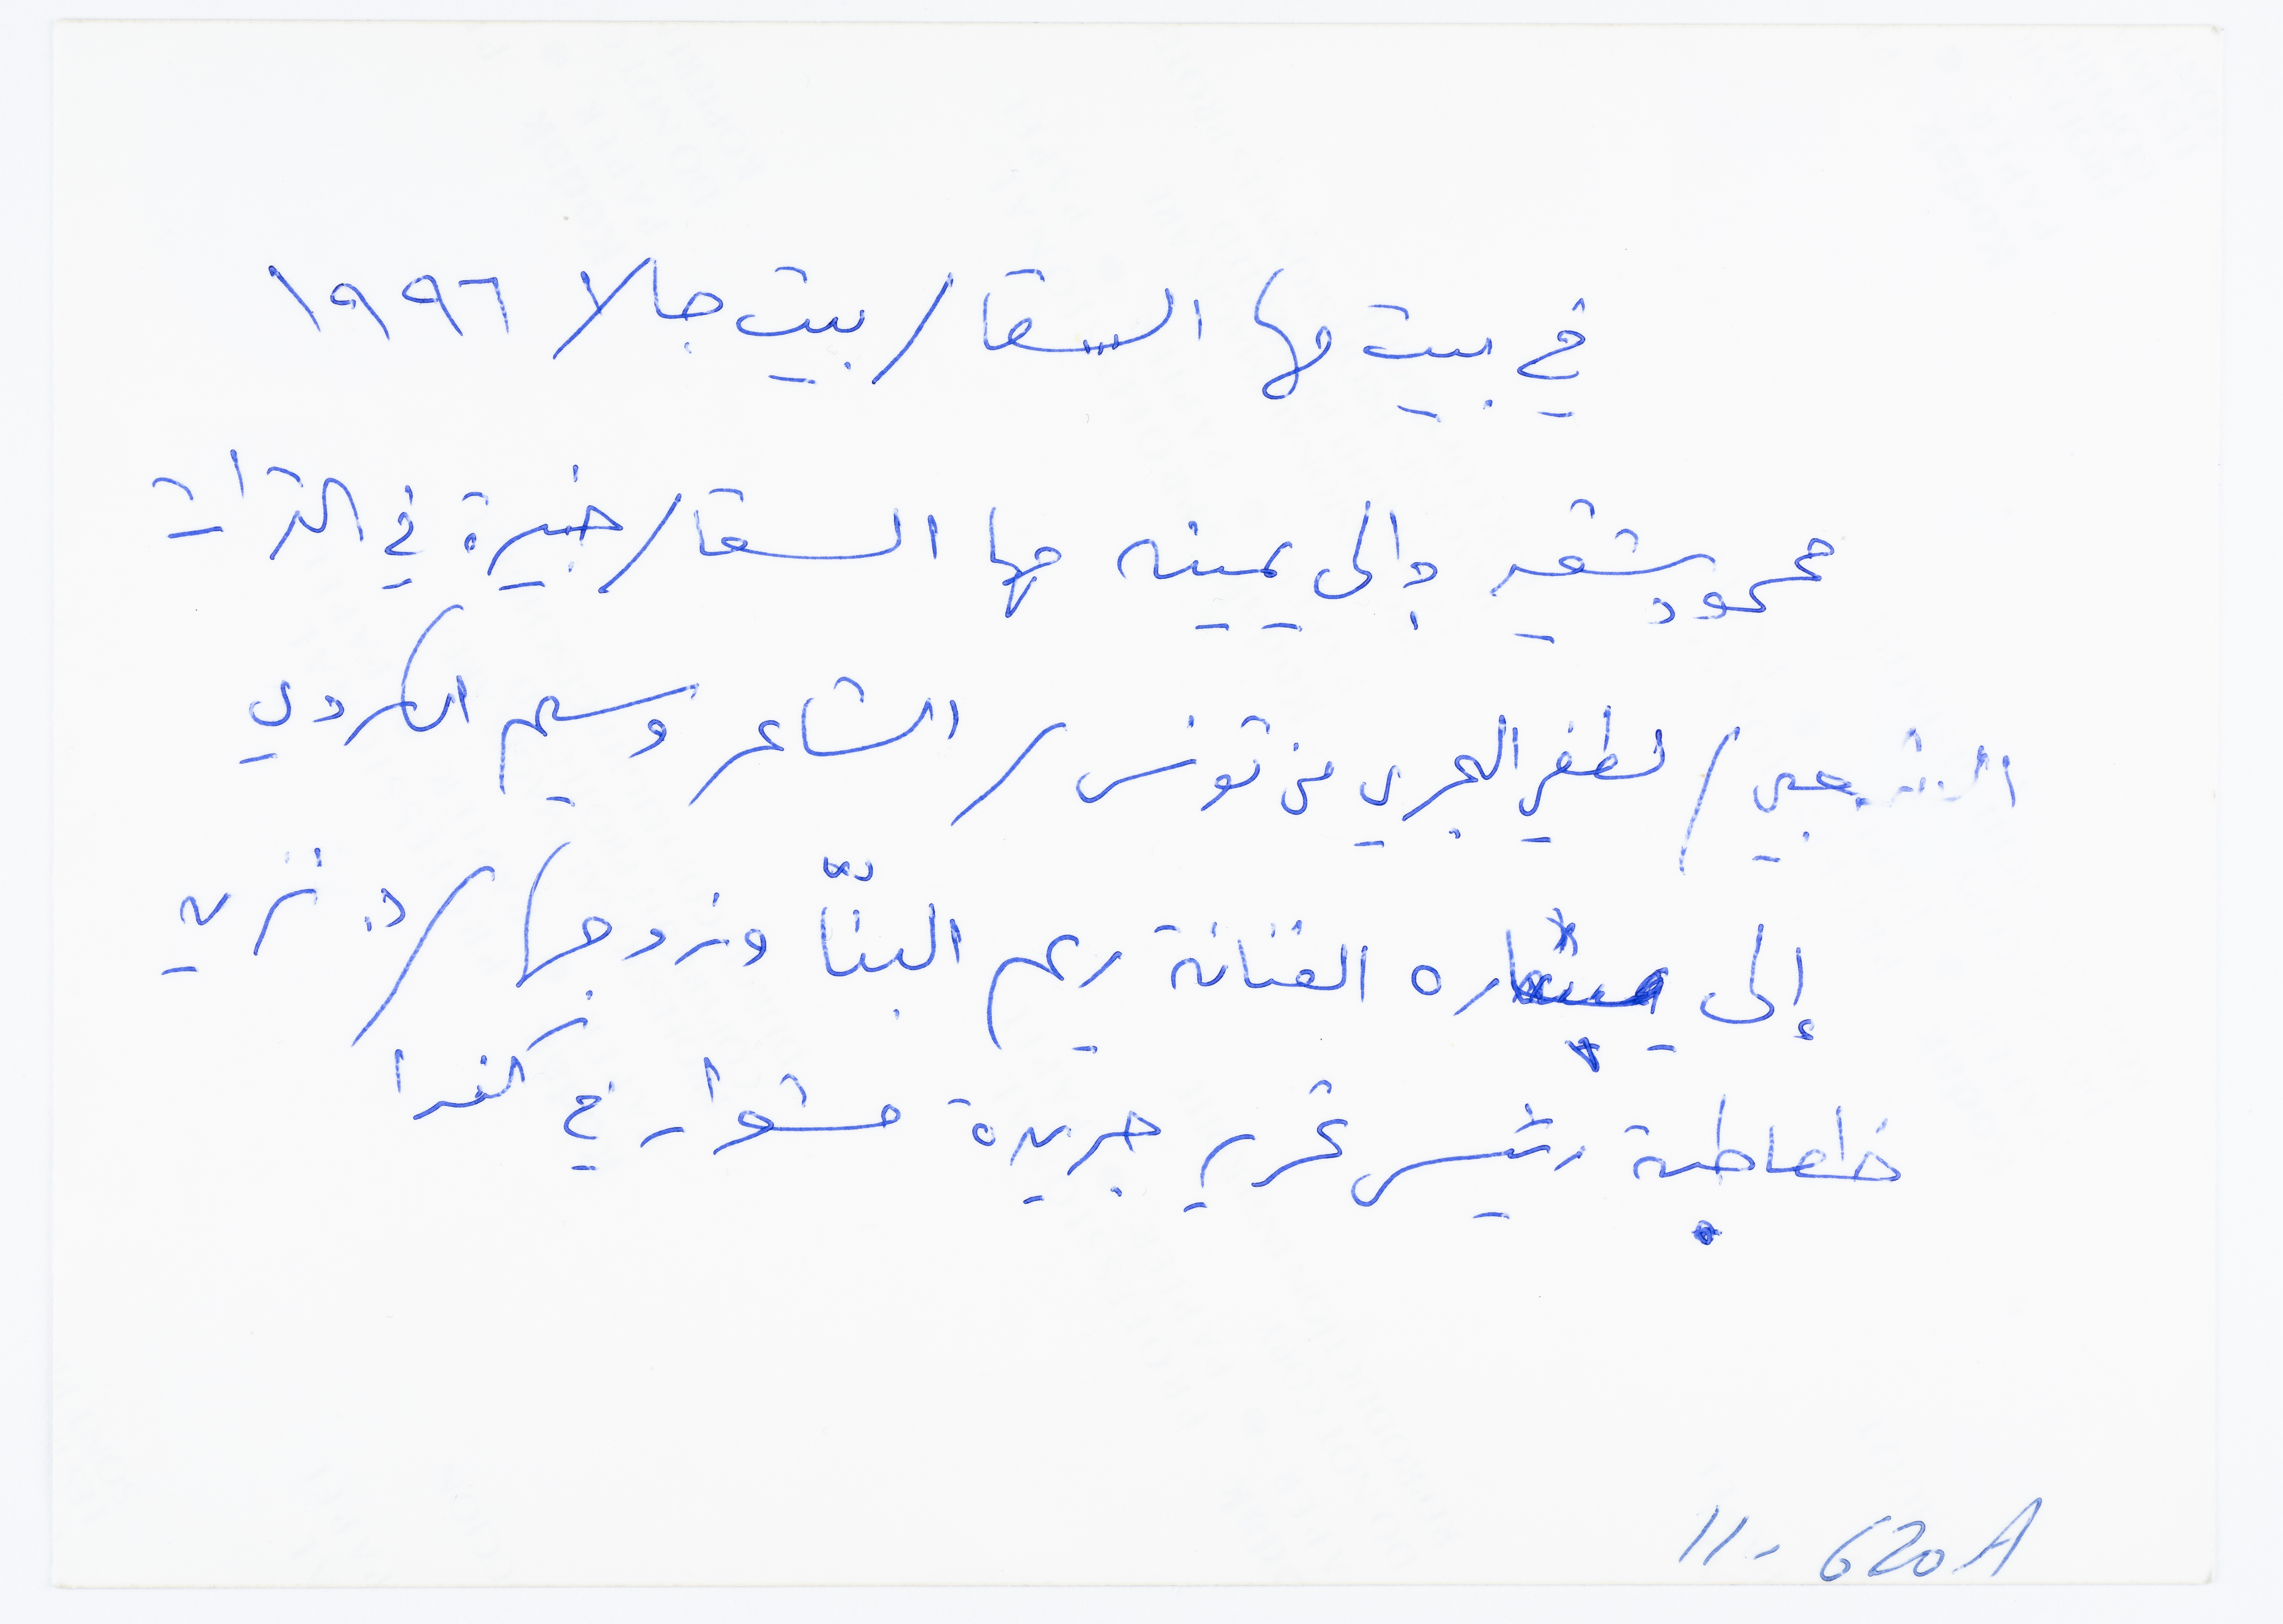 في بيت مها السقا / بيت جالا / ١٩٩٦
محمود شقير وإلى يمينه مها السقا / خبيرة في التراث
الشعبي / لطفي الحجري من تونس / الشاعر وسيم الكردي
إلى يساره الفنانة ريم البنّا وزوجها / د. نزيه
خطاطبة رئيس تحرير جريدة مشوار في كندا
11 - 620 A